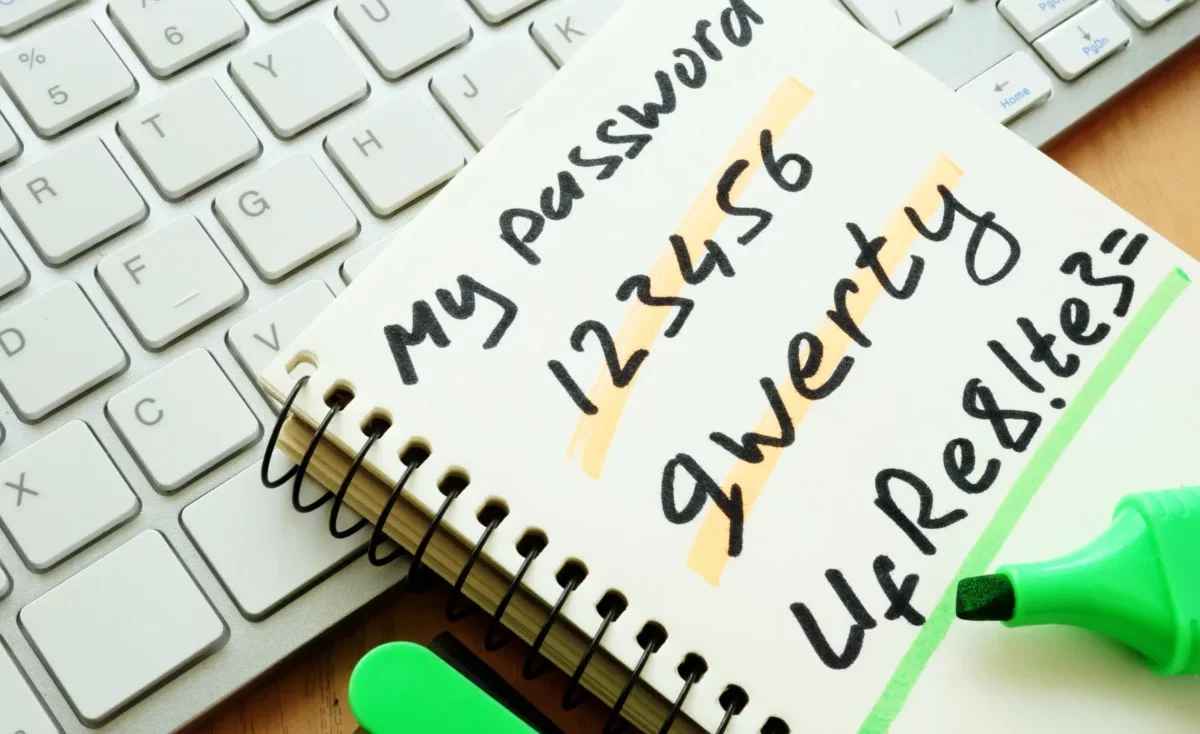 My password
123456
qwerty
UfRe8!te3=
% 5
6
U
K
/
PgDn
Home
Y
J
T
H
R
G
F
D
V
C
X